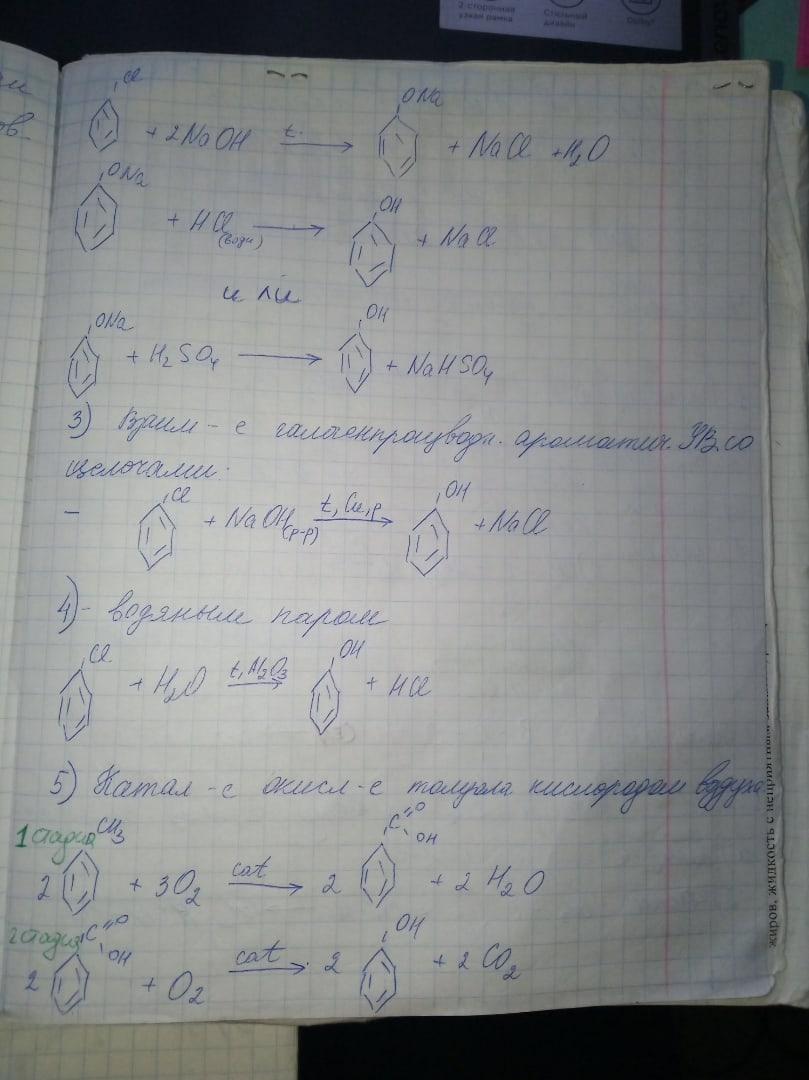 2 сторонняя
узкая рамка
Стильный
дизайн
Cl
+ 2NaOH t. → ONa + NaCl + H₂O
ONa + HCl (водн) → OH + NaCl
или
ONa + H₂SO₄ → OH + NaHSO₄
3) Взаим-е галогенпроизводн. ароматич. УВ со
щелочами:
- Cl + NaOH (р-р) t, Cu, p → OH + NaCl
4) - водяным паром
Cl + H₂O t, Al₂O₃ → OH + HCl
5) Катал-е окисл-е толуола кислородом воздуха
1 стадия CH₃
2 + 3O₂ cat → 2 C=O OH + 2 H₂O
2 стадия C=O OH
2 + O₂ cat → 2 OH + 2 CO₂
жиров, жидкость с неприятным